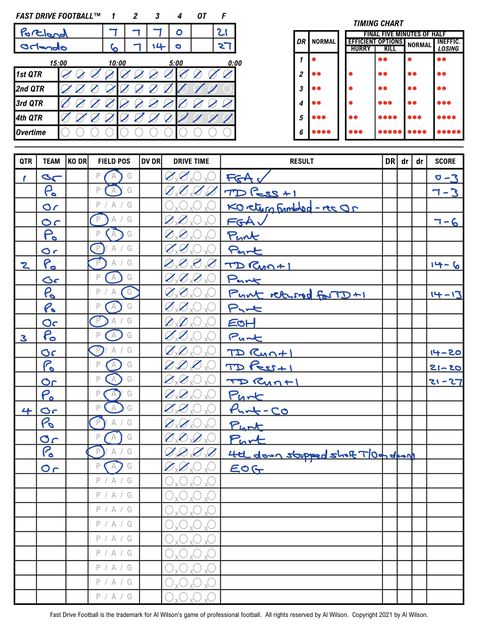 FAST DRIVE FOOTBALL™ 1 2 3 4 OT F
Portland 7 7 7 0 21
Orlando 6 7 14 0 27
15:00 10:00 5:00 0:00
1st QTR
2nd QTR
3rd QTR
4th QTR
Overtime
TIMING CHART
FINAL FIVE MINUTES OF HALF
DR NORMAL EFFICIENT OPTIONS NORMAL INEFFIC.
HURRY KILL LOSING
1
2
3
4
5
6
QTR TEAM KO DR FIELD POS DV DR DRIVE TIME RESULT DR dr dr SCORE
1 Or P / A / G FGA ✓ 0-3
Po P / A / G TD Pass +1 7-3
Or P / A / G KO return fumbled - rec Or
Or P / A / G FGA ✓ 7-6
Po P / A / G Punt
Or P / A / G Punt
2 Po P / A / G TD Run +1 14-6
Or P / A / G Punt
Po P / A / G Punt returned for TD +1 14-13
Po P / A / G Punt
Or P / A / G EOH
3 Po P / A / G Punt
Or P / A / G TD Run +1 14-20
Po P / A / G TD Pass +1 21-20
Or P / A / G TD Run +1 21-27
Po P / A / G Punt
4 Or P / A / G Punt - CO
Po P / A / G Punt
Or P / A / G Punt
Po P / A / G 4th down stopped short T/O on downs
Or P / A / G EOG
P / A / G
P / A / G
P / A / G
P / A / G
P / A / G
P / A / G
P / A / G
P / A / G
P / A / G
Fast Drive Football is the trademark for Al Wilson's game of professional football. All rights reserved by Al Wilson. Copyright 2021 by Al Wilson.